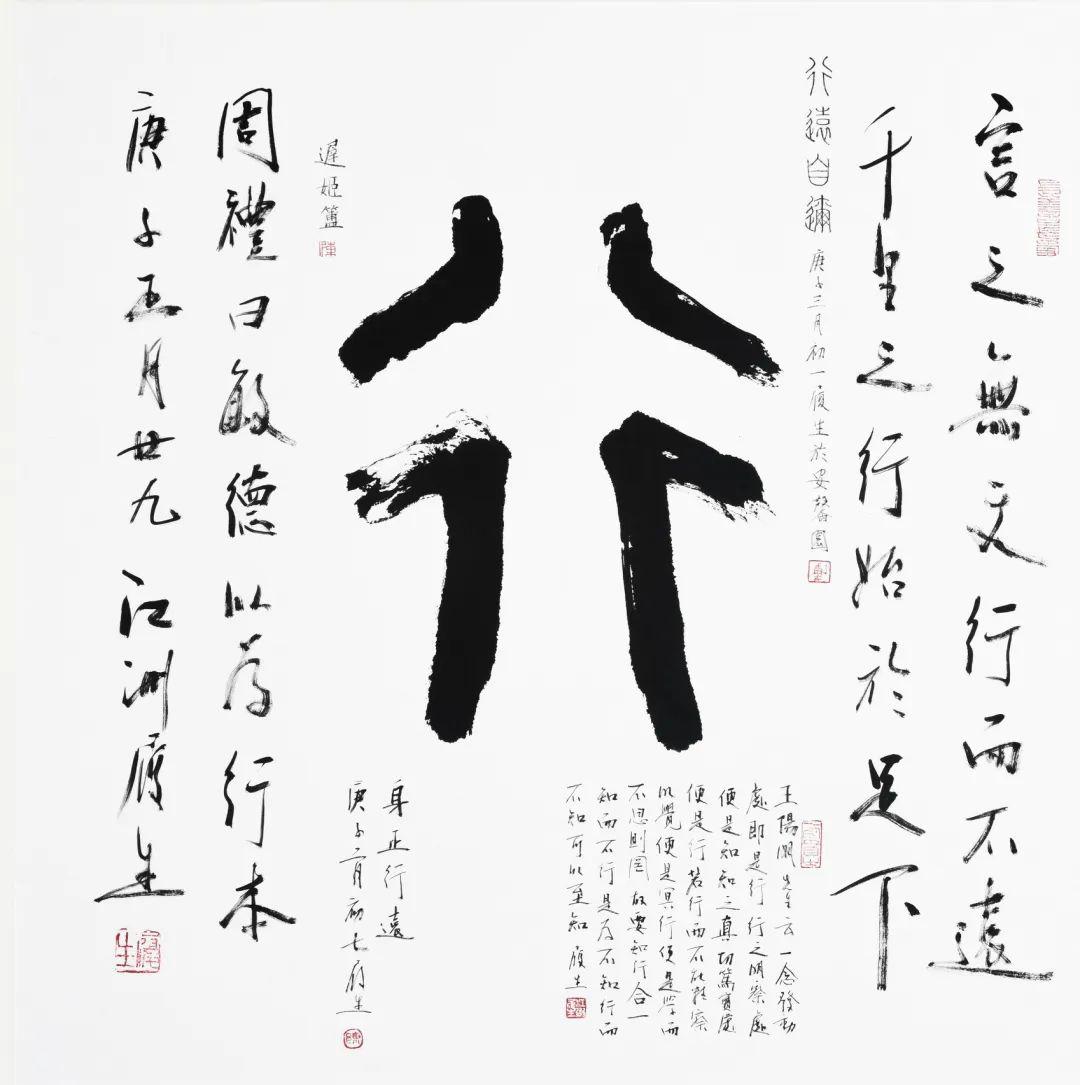 言之無文行而不遠
千里之行始於足下
行遠自邇 庚子三月初一履生於安馨園
行
王陽明先生云一念發動
處即是行行之明察處
便是知知之真切篤實處
便是行若行而不能精察
以覺便是冥行便是學而
不思則罔故要知行合一
知而不行是為不知行而
不知可以至知履生
遲姬簠
身正行遠
庚子二月初七履生
周禮曰敏德以為行本
庚子正月廿九江洲履生